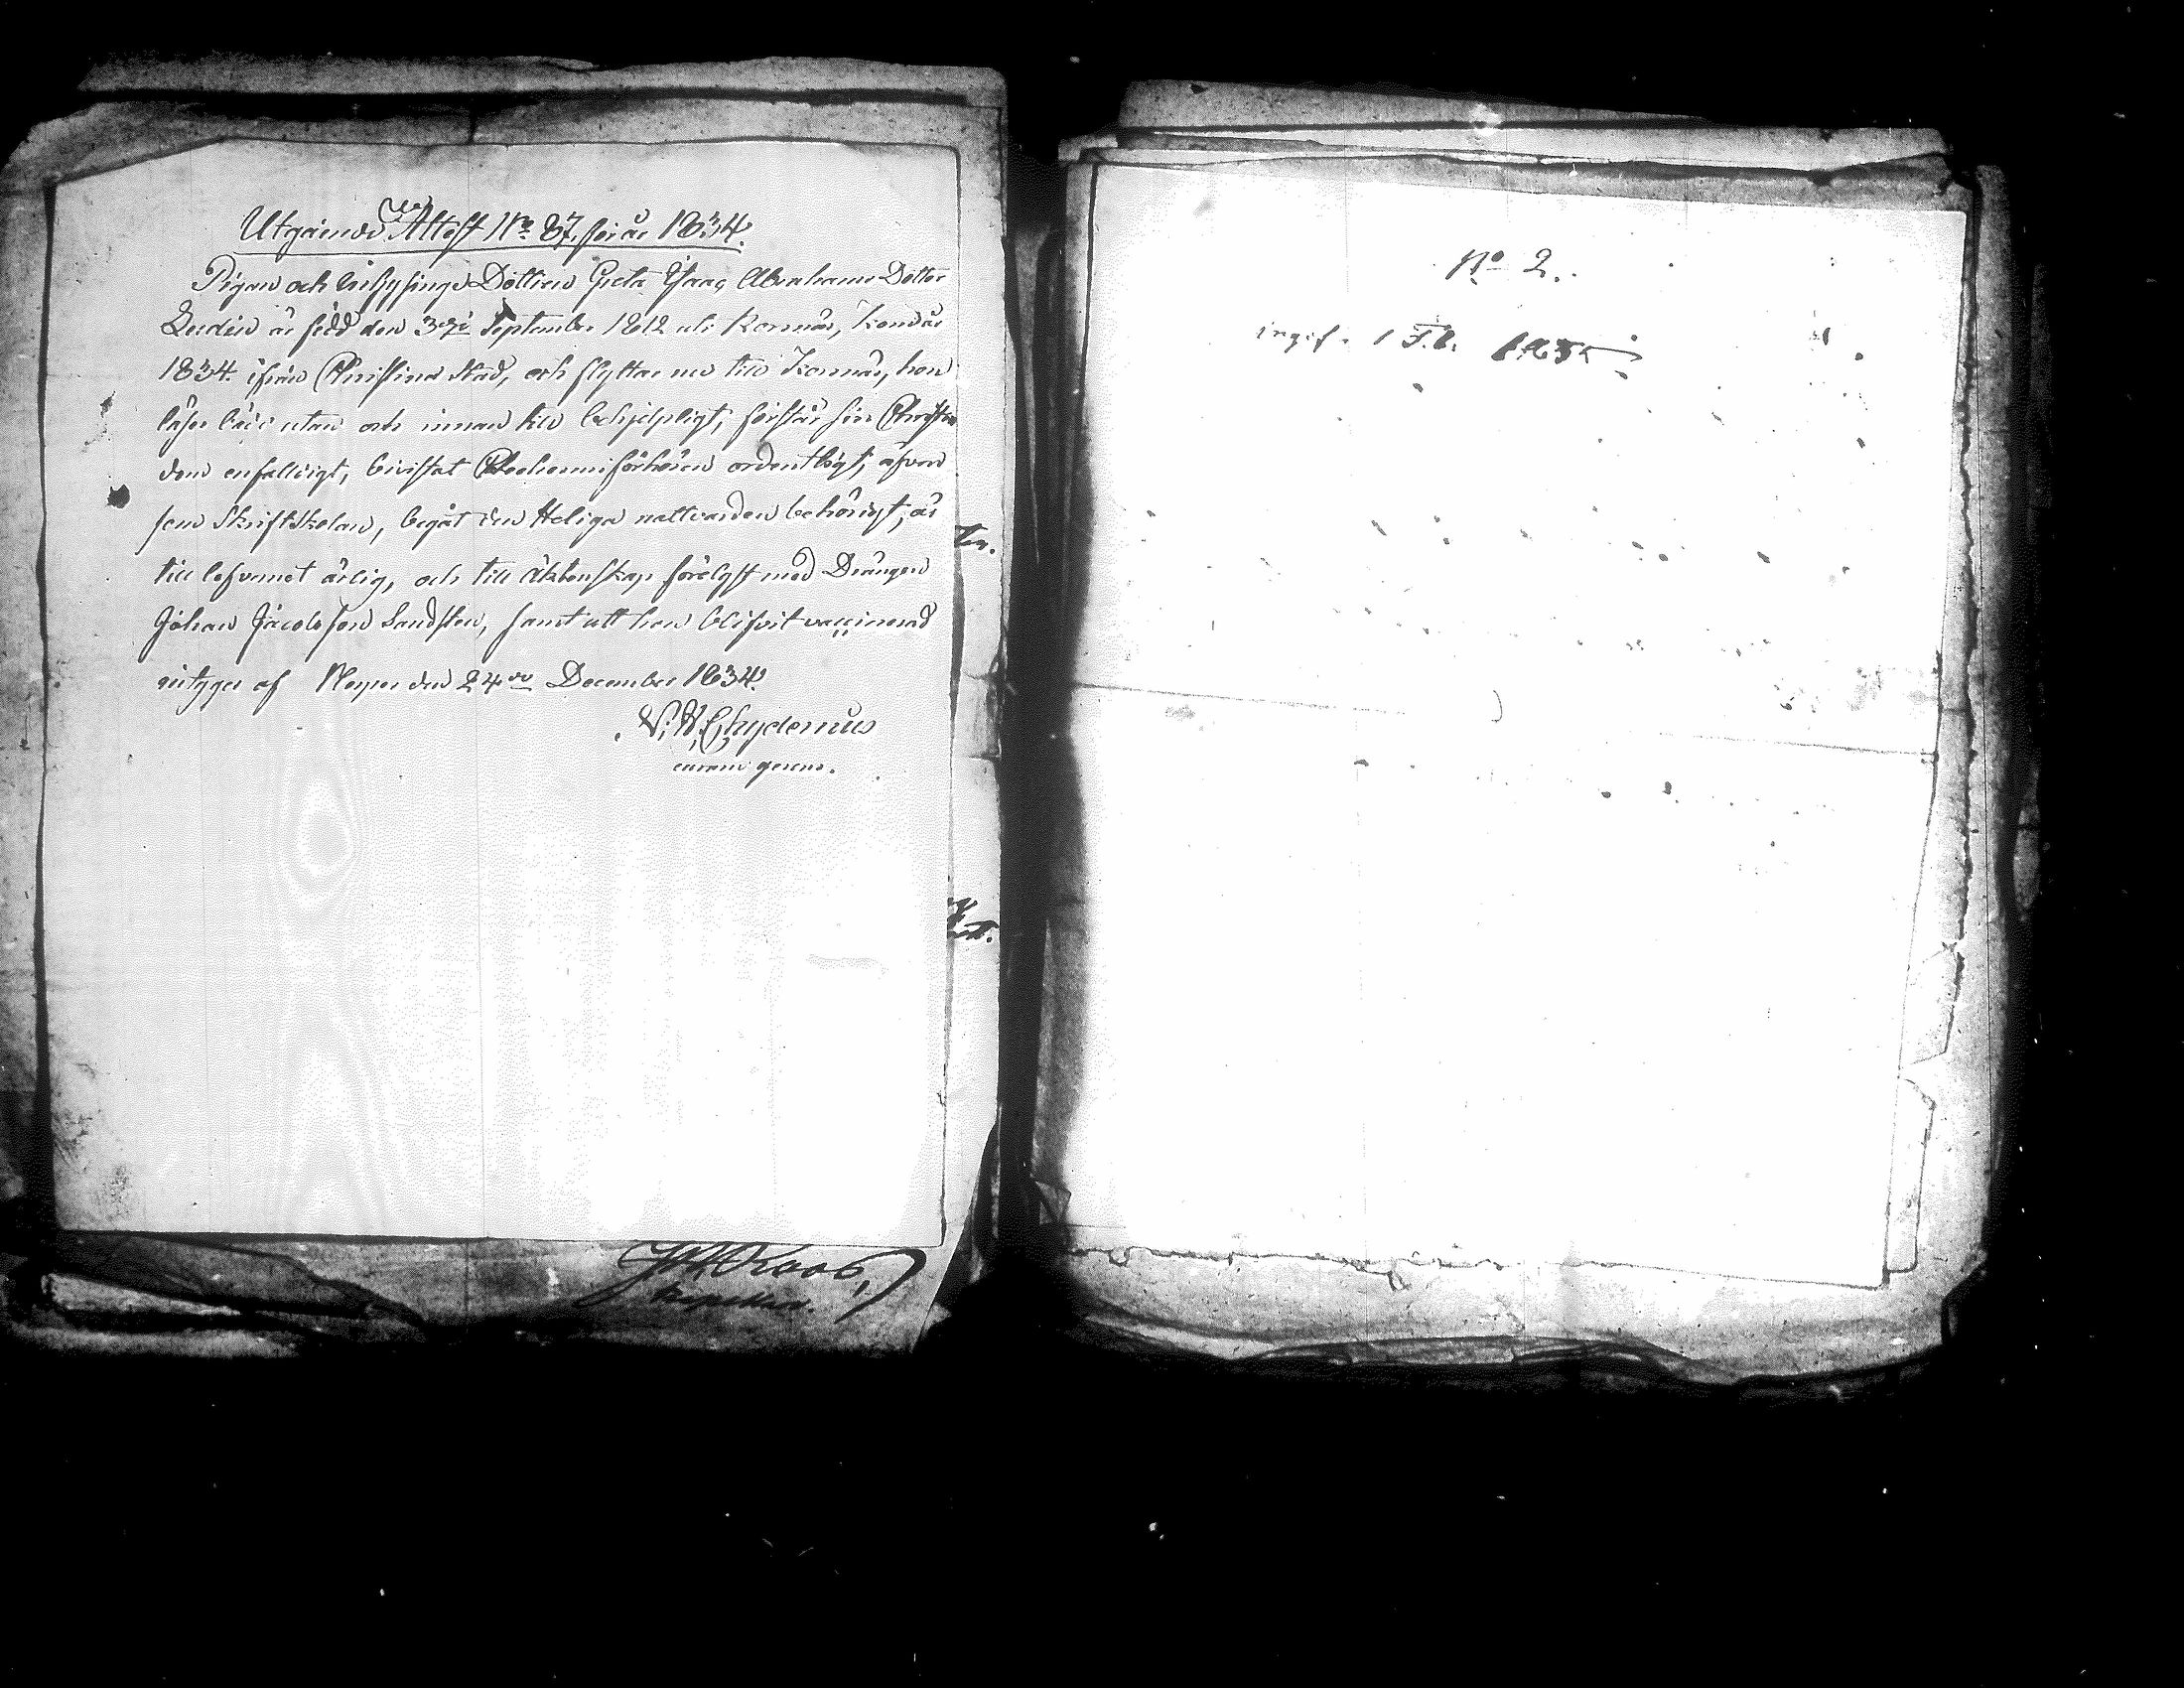 Utgående Attest No 87. för år 1834.
Pigan och Inhysinge Dottren Greta Isaaç Abrahams Dotter
är född den 3dje September 1812 uti Korsnäs, kom år
1834. ifrån Christina Stad, och flyttar nu till Korsnäs, hon
läser både utan och innan till behjelpligt, förstår sin Christen
dom enfaldigt, bivistat Catechismiförhören ordentligt, äfven
som Skriftskolan, begåt den Heliga nattvarden behörigt, är
till lefvernet ärlig, och till äktenskap förelyst med Drängen
Johan Jacobsson Sandsten, samt att hon blifvit vaccinerad
intygar af Nerpes den 24de December 1834.
Chydenius
curam gerens.
tn.
Kapellan.
No 2.
ingif. 1 Feb. 1835